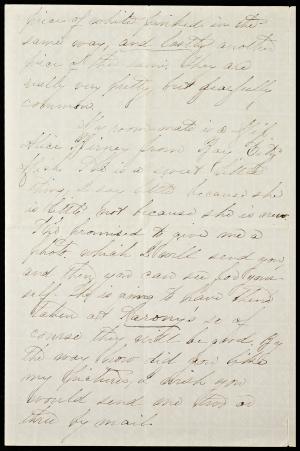 piece of white bunched in the
same way, and lastly another
piece of the same. They are
really very pretty, but fearfully
common.
My room-mate is a Miss
Alice Birney from Bay City
Mich. She is a sweet little
thing, I say little because she
is little not because she is mean.
She promised to give me a
photo, which I will send you
and then you can see for your
self. She is going to have them
taken at Sarony's so of
course they will be good. By
the way how did you like
my pictures, I wish you
would send me two or
three by mail.